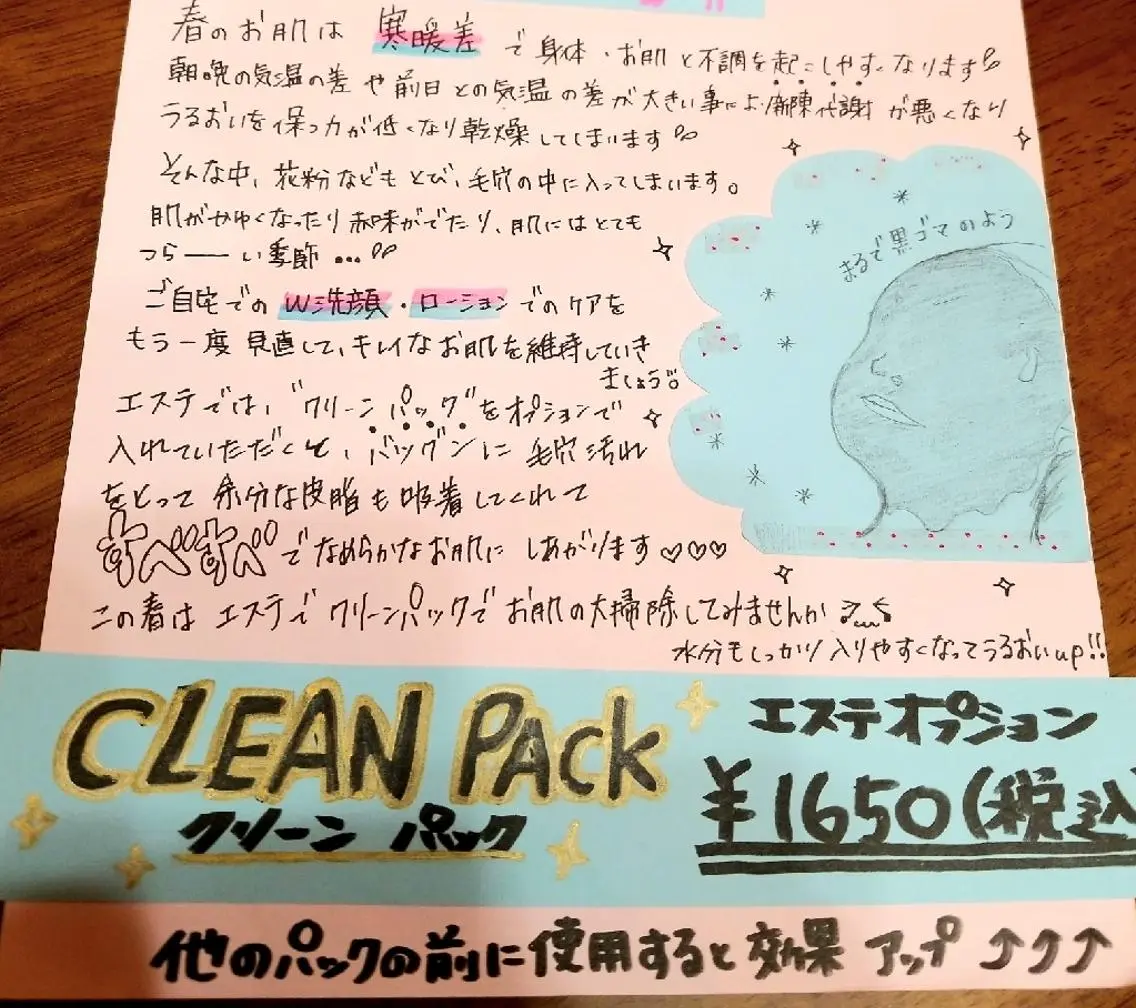 春のお肌は 寒暖差 で 身体・お肌 と不調を起こしやすくなります
朝晩の気温の差や前日との気温の差が大きい事により新陳代謝が悪くなり
うるおいを保つ力が低くなり乾燥してしまいます
そんな中、花粉などもとび、毛穴の中に入ってしまいます。
肌がかゆくなったり赤味がでたり、肌にはとても
つらーい季節...
ご自宅での W洗顔・ローションでのケアを
もう一度見直して、キレイなお肌を維持していき
ましょう
エステでは、"クリーンパック"をオプションで
入れていただくと、バツグンに毛穴汚れ
をとって 余分な皮脂も吸着してくれて
すべすべでなめらかなお肌に しあがります♡♡♡
この春は エステで クリーンパックで お肌の大掃除してみませんか
水分もしっかり入りやすくなってうるおいup!!
まるで黒ゴマのよう
CLEAN PAck
クリーン パック
エステオプション
¥1650(税込
他のパックの前に使用すると効果 アップ ⤴⤴⤴